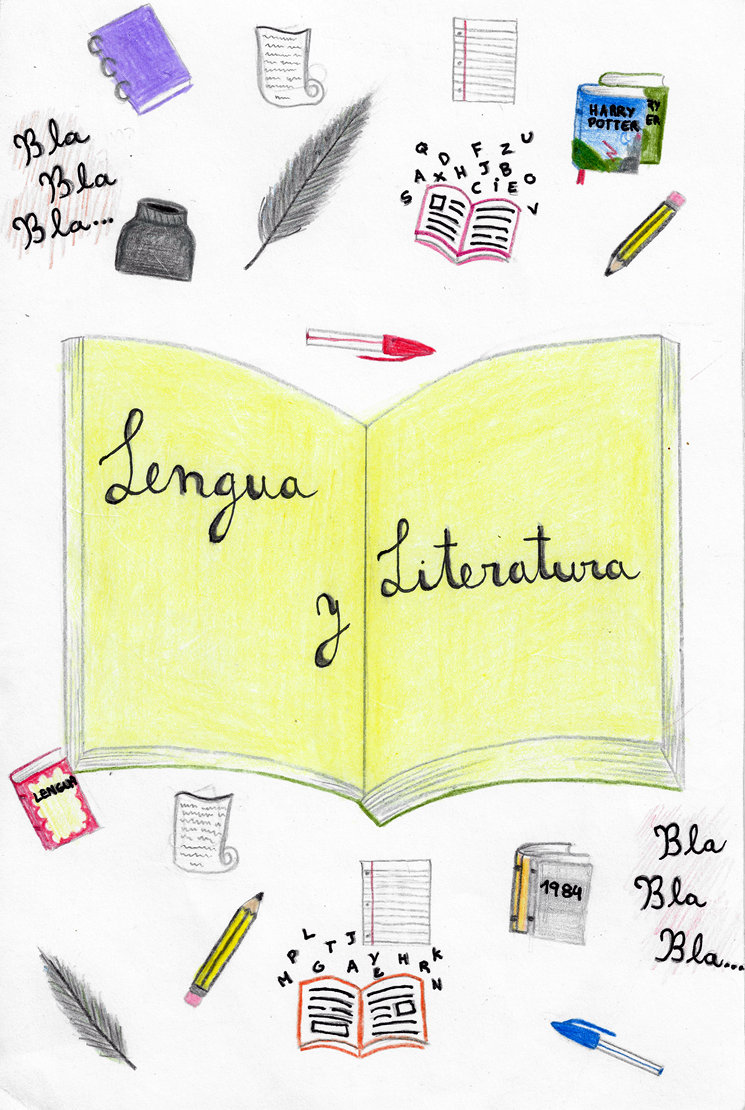 Bla
Bla
Bla...
Q D F Z U
A X H J B
S C i E O
V
HARRY
POTTER
RY
ER
Lengua
y
Literatura
LENGUA
1984
Bla
Bla
Bla...
L T J
P Y K
M G A E H R N